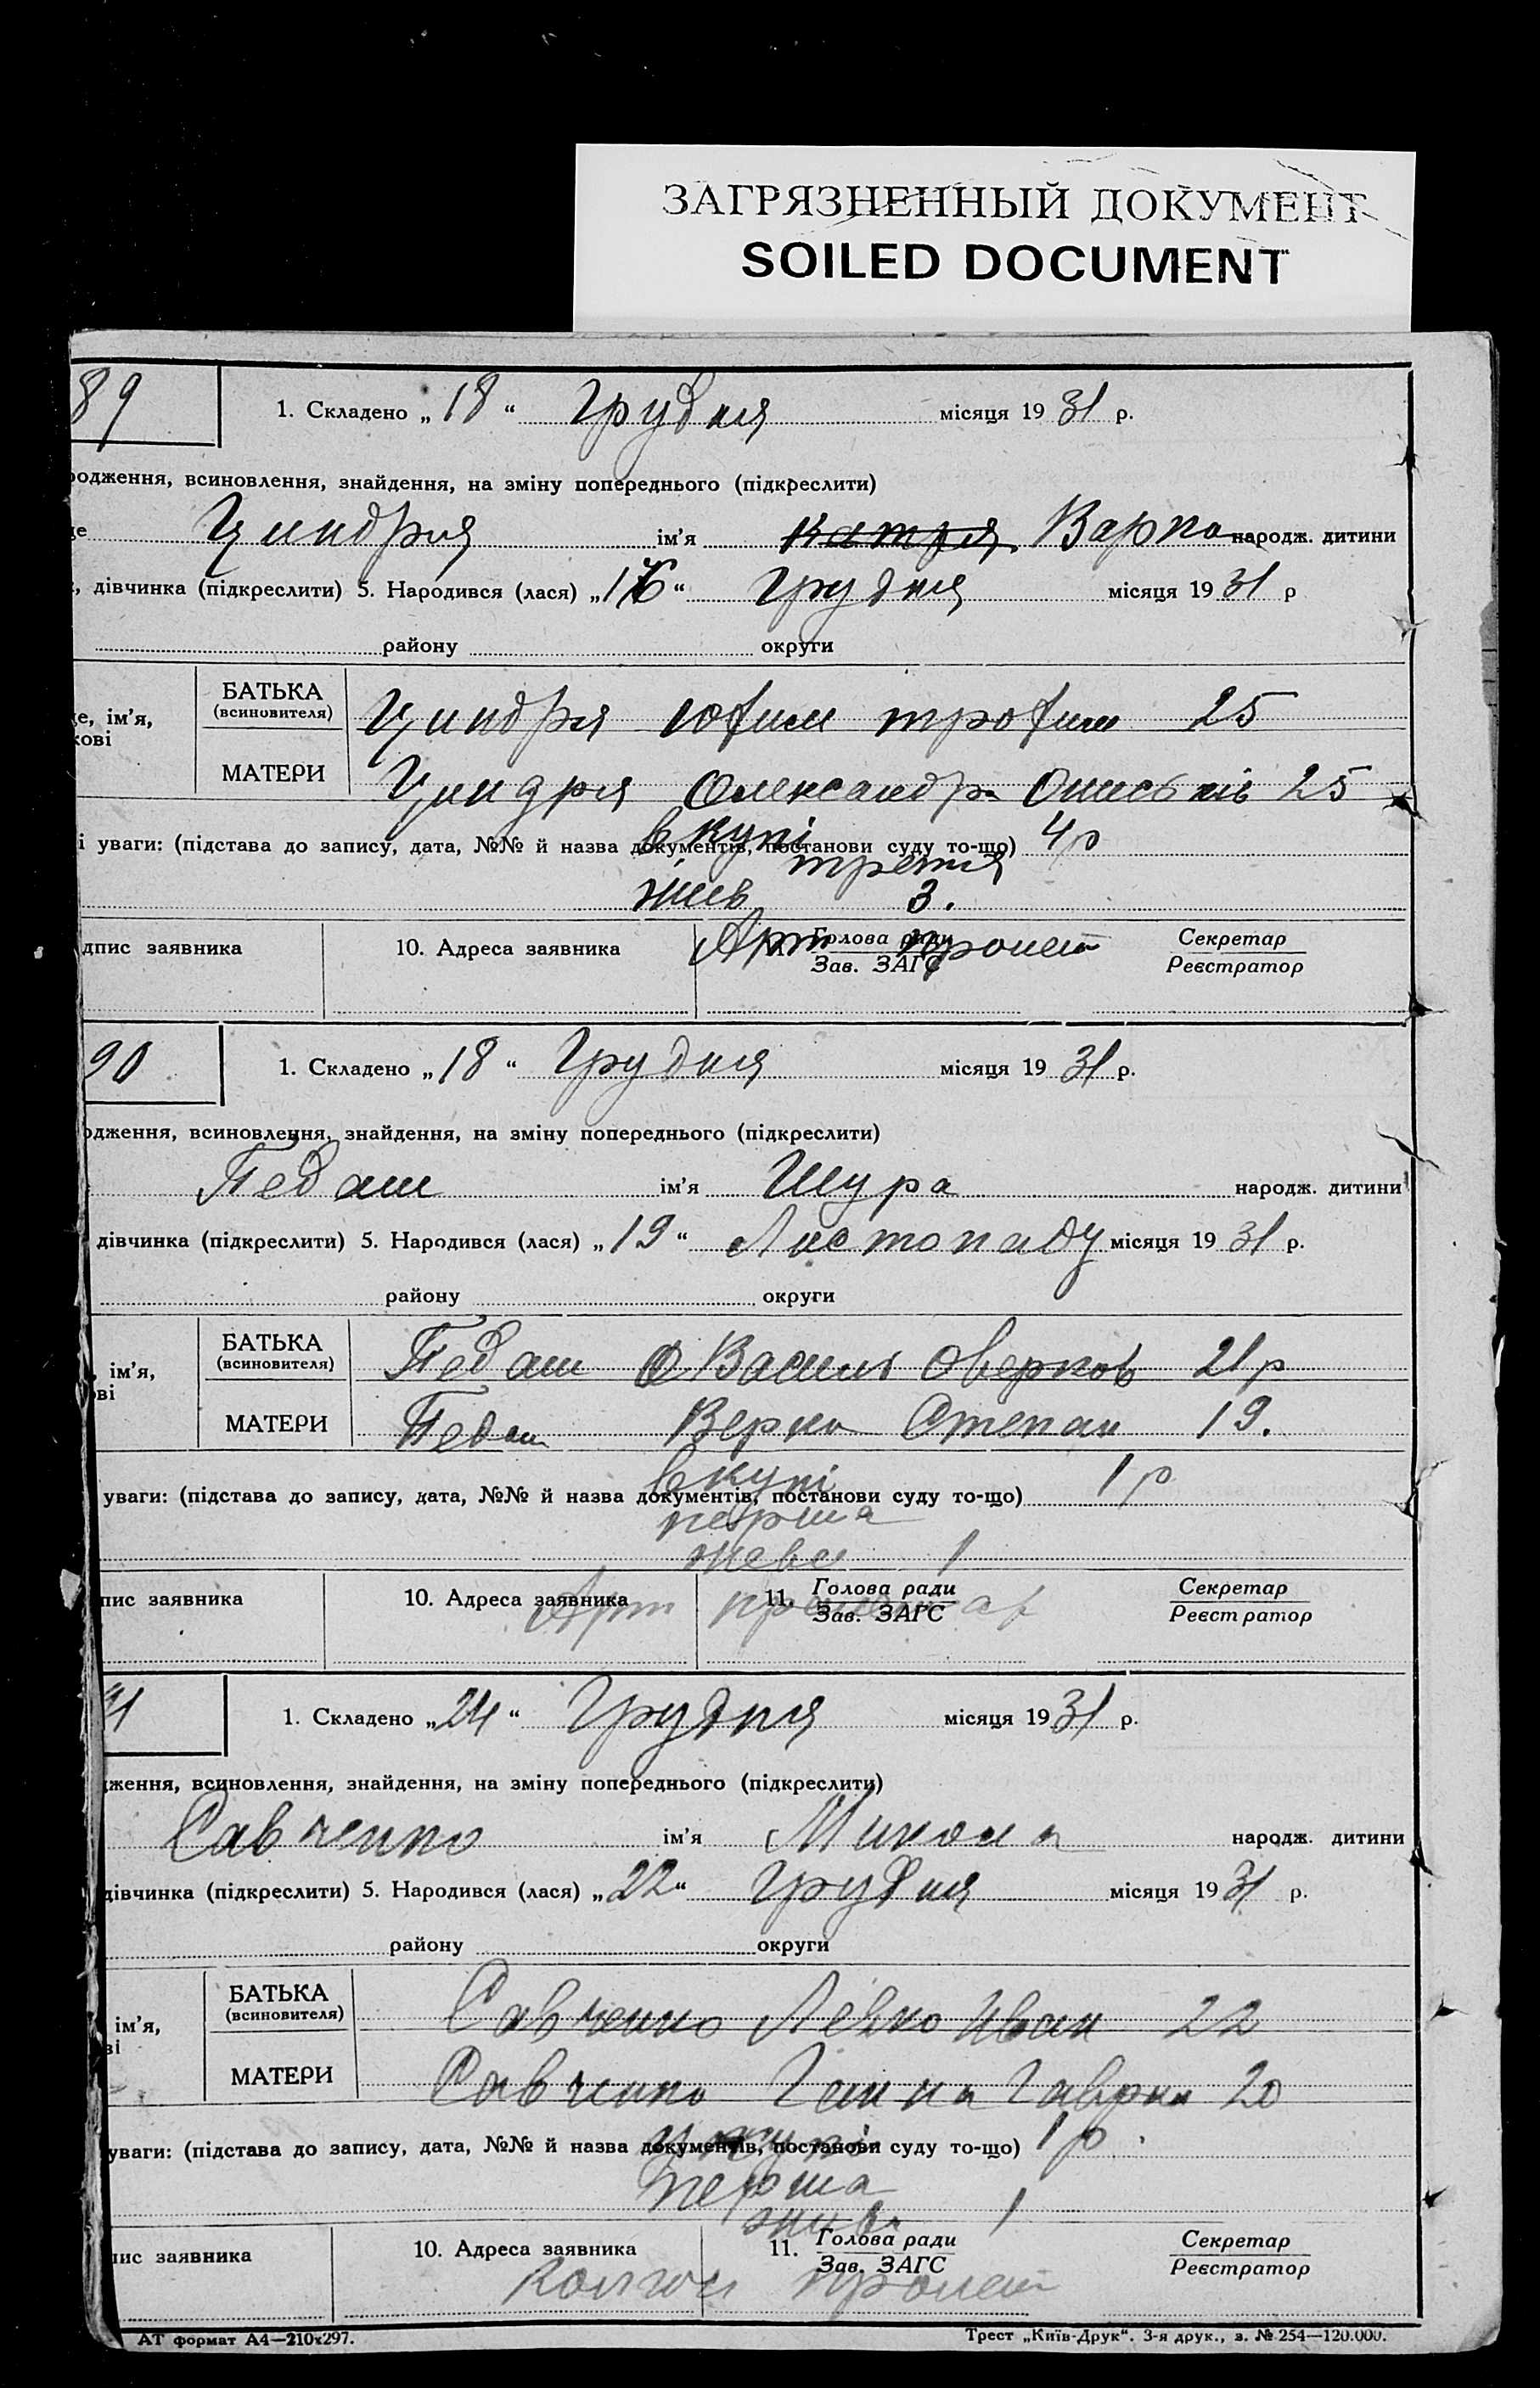 ЗАГРЯЗНЕННЫЙ ДОКУМЕНТ
SOILED DOCUMENT
89
1. Складено „18“ Грудня місяця 1931 р.
родження, всиновлення, знайдення, на зміну попереднього (підкреслити)
Циндря ім’я Катря Варка народж. дитини
дівчинка (підкреслити) 5. Народився (лася) „16“ грудня місяця 1931 р
району округи
ім’я,
БАТЬКА
(всиновителя)
Циндря Юхим трохим 25
МАТЕРИ
Циндря Олександр 25
і уваги: (підстава до запису, дата, №№ й назва документів, постанови суду то-що) 4р
вкупі
третя
3.
дпис заявника 10. Адреса заявника Голова ради Секретар
Зав. ЗАГС Реєстратор
Арт пролет
90
1. Складено „18“ Грудня місяця 1931 р.
одження, всиновлення, знайдення, на зміну попереднього (підкреслити)
Педаш ім’я Шура народж. дитини
дівчинка (підкреслити) 5. Народився (лася) „19“ Листопаду місяця 1931 р.
району округи
ім’я,
ві
БАТЬКА
(всиновителя)
Педаш Василь Оверков 21р
МАТЕРИ
Педаш Верка Степан 19.
уваги: (підстава до запису, дата, №№ й назва документів, постанови суду то-що) 1р
вкупі
перша
1
пис заявника 10. Адреса заявника 11. Голова ради Секретар
Зав. ЗАГС Реєстратор
Арт
91
1. Складено „24“ Грудня місяця 1931 р.
дження, всиновлення, знайдення, на зміну попереднього (підкреслити)
Савченко ім’я Микола народж. дитини
дівчинка (підкреслити) 5. Народився (лася) „22“ грудня місяця 1931 р.
району округи
ім’я,
ві
БАТЬКА
(всиновителя)
Савченко Левко Иван 22
МАТЕРИ
Савченко Ганна Гаврил 20
уваги: (підстава до запису, дата, №№ й назва документів, постанови суду то-що) 1р.
перша
1
пис заявника 10. Адреса заявника 11. Голова ради Секретар
Зав. ЗАГС Реєстратор
пролет
АТ формат А4—210х297. Трест „Київ-Друк“. 3-я друк., з. № 254—120.000.